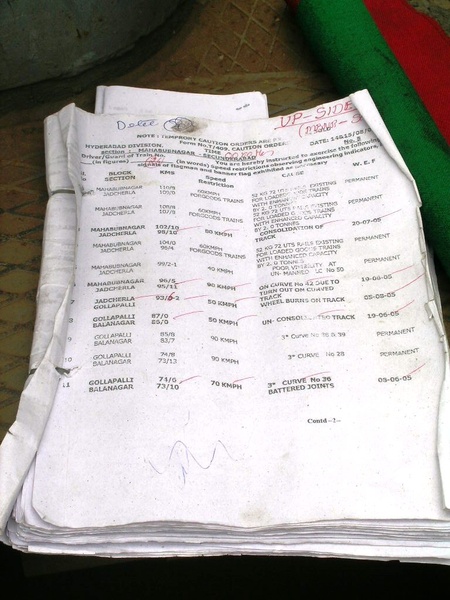 UP-SIDE
NOTE : TEMPRORY CAUTION ORDERS ARE
Form No.T/409, CAUTION ORDER
HYDERABAD DIVISION.
TIME
DATE:
section : MAHABUBNAGAR - SECUNDERABAD
No. 8
Driver/Guard of Train No.
(in words) You are hereby instructed to exercise the following
(in figures)
speed restrictions observing engineering indicators,
of flagman and banner flag exhibited as necessary
BLOCK SECTION KMS Speed Restriction CAUSE W. E. F
MAHABUBNAGAR JADCHERLA 110/8 FORGOODS TRAINS 52 KG 72 UTS RAILS EXISTING FOR LOADED GOODS TRAINS WITH ENHANCED CAPACITY BY 2. 0 TONNES PERMANENT
MAHABUBNAGAR JADCHERLA 60KMPH FORGOODS TRAINS 52 KG 72 UTS RAILS EXISTING FOR LOADED GOODS TRAINS WITH ENHANCED CAPACITY BY 2. 0 TONNES PERMANENT
MAHABUBNAGAR JADCHERLA 102/10 50 KMPH CONSOLIDATION OF TRACK 20-07-05
MAHABUBNAGAR JADCHERLA 104/0 98/4 60KMPH FORGOODS TRAINS 52 KG 72 UTS RAILS EXISTING FOR LOADED GOODS TRAINS WITH ENHANCED CAPACITY BY 2. 0 TONNES PERMANENT
MAHABUBNAGAR JADCHERLA 99/2-1 40 KMPH POOR VISIBILITY AT UN- MANNED LC No 50 PERMANENT
MAHABUBNAGAR JADCHERLA 96/5 95/11 90 KMPH ON CURVE No 42 DUE TO TURN OUT ON CURVED TRACK 19-06-05
7 JADCHERLA GOLLAPALLI 93/ 50 KMPH WHEEL BURNS ON TRACK 05-08-05
GOLLAPALLI BALANAGAR 87/0 85/0 50 KMPH UN- CONSOLIDATED TRACK 19-06-05
GOLLAPALLI BALANAGAR 85/8 83/7 90 KMPH 3° CURVE No 38 & 39 PERMANENT
10 GOLLAPALLI BALANAGAR 74/8 73/13 90 KMPH 3° CURVE No 28 PERMANENT
11 GOLLAPALLI BALANAGAR 74/6 73/10 70 KMPH 3° CURVE No 36 BATTERED JOINTS 09-06-05
Contd -2-